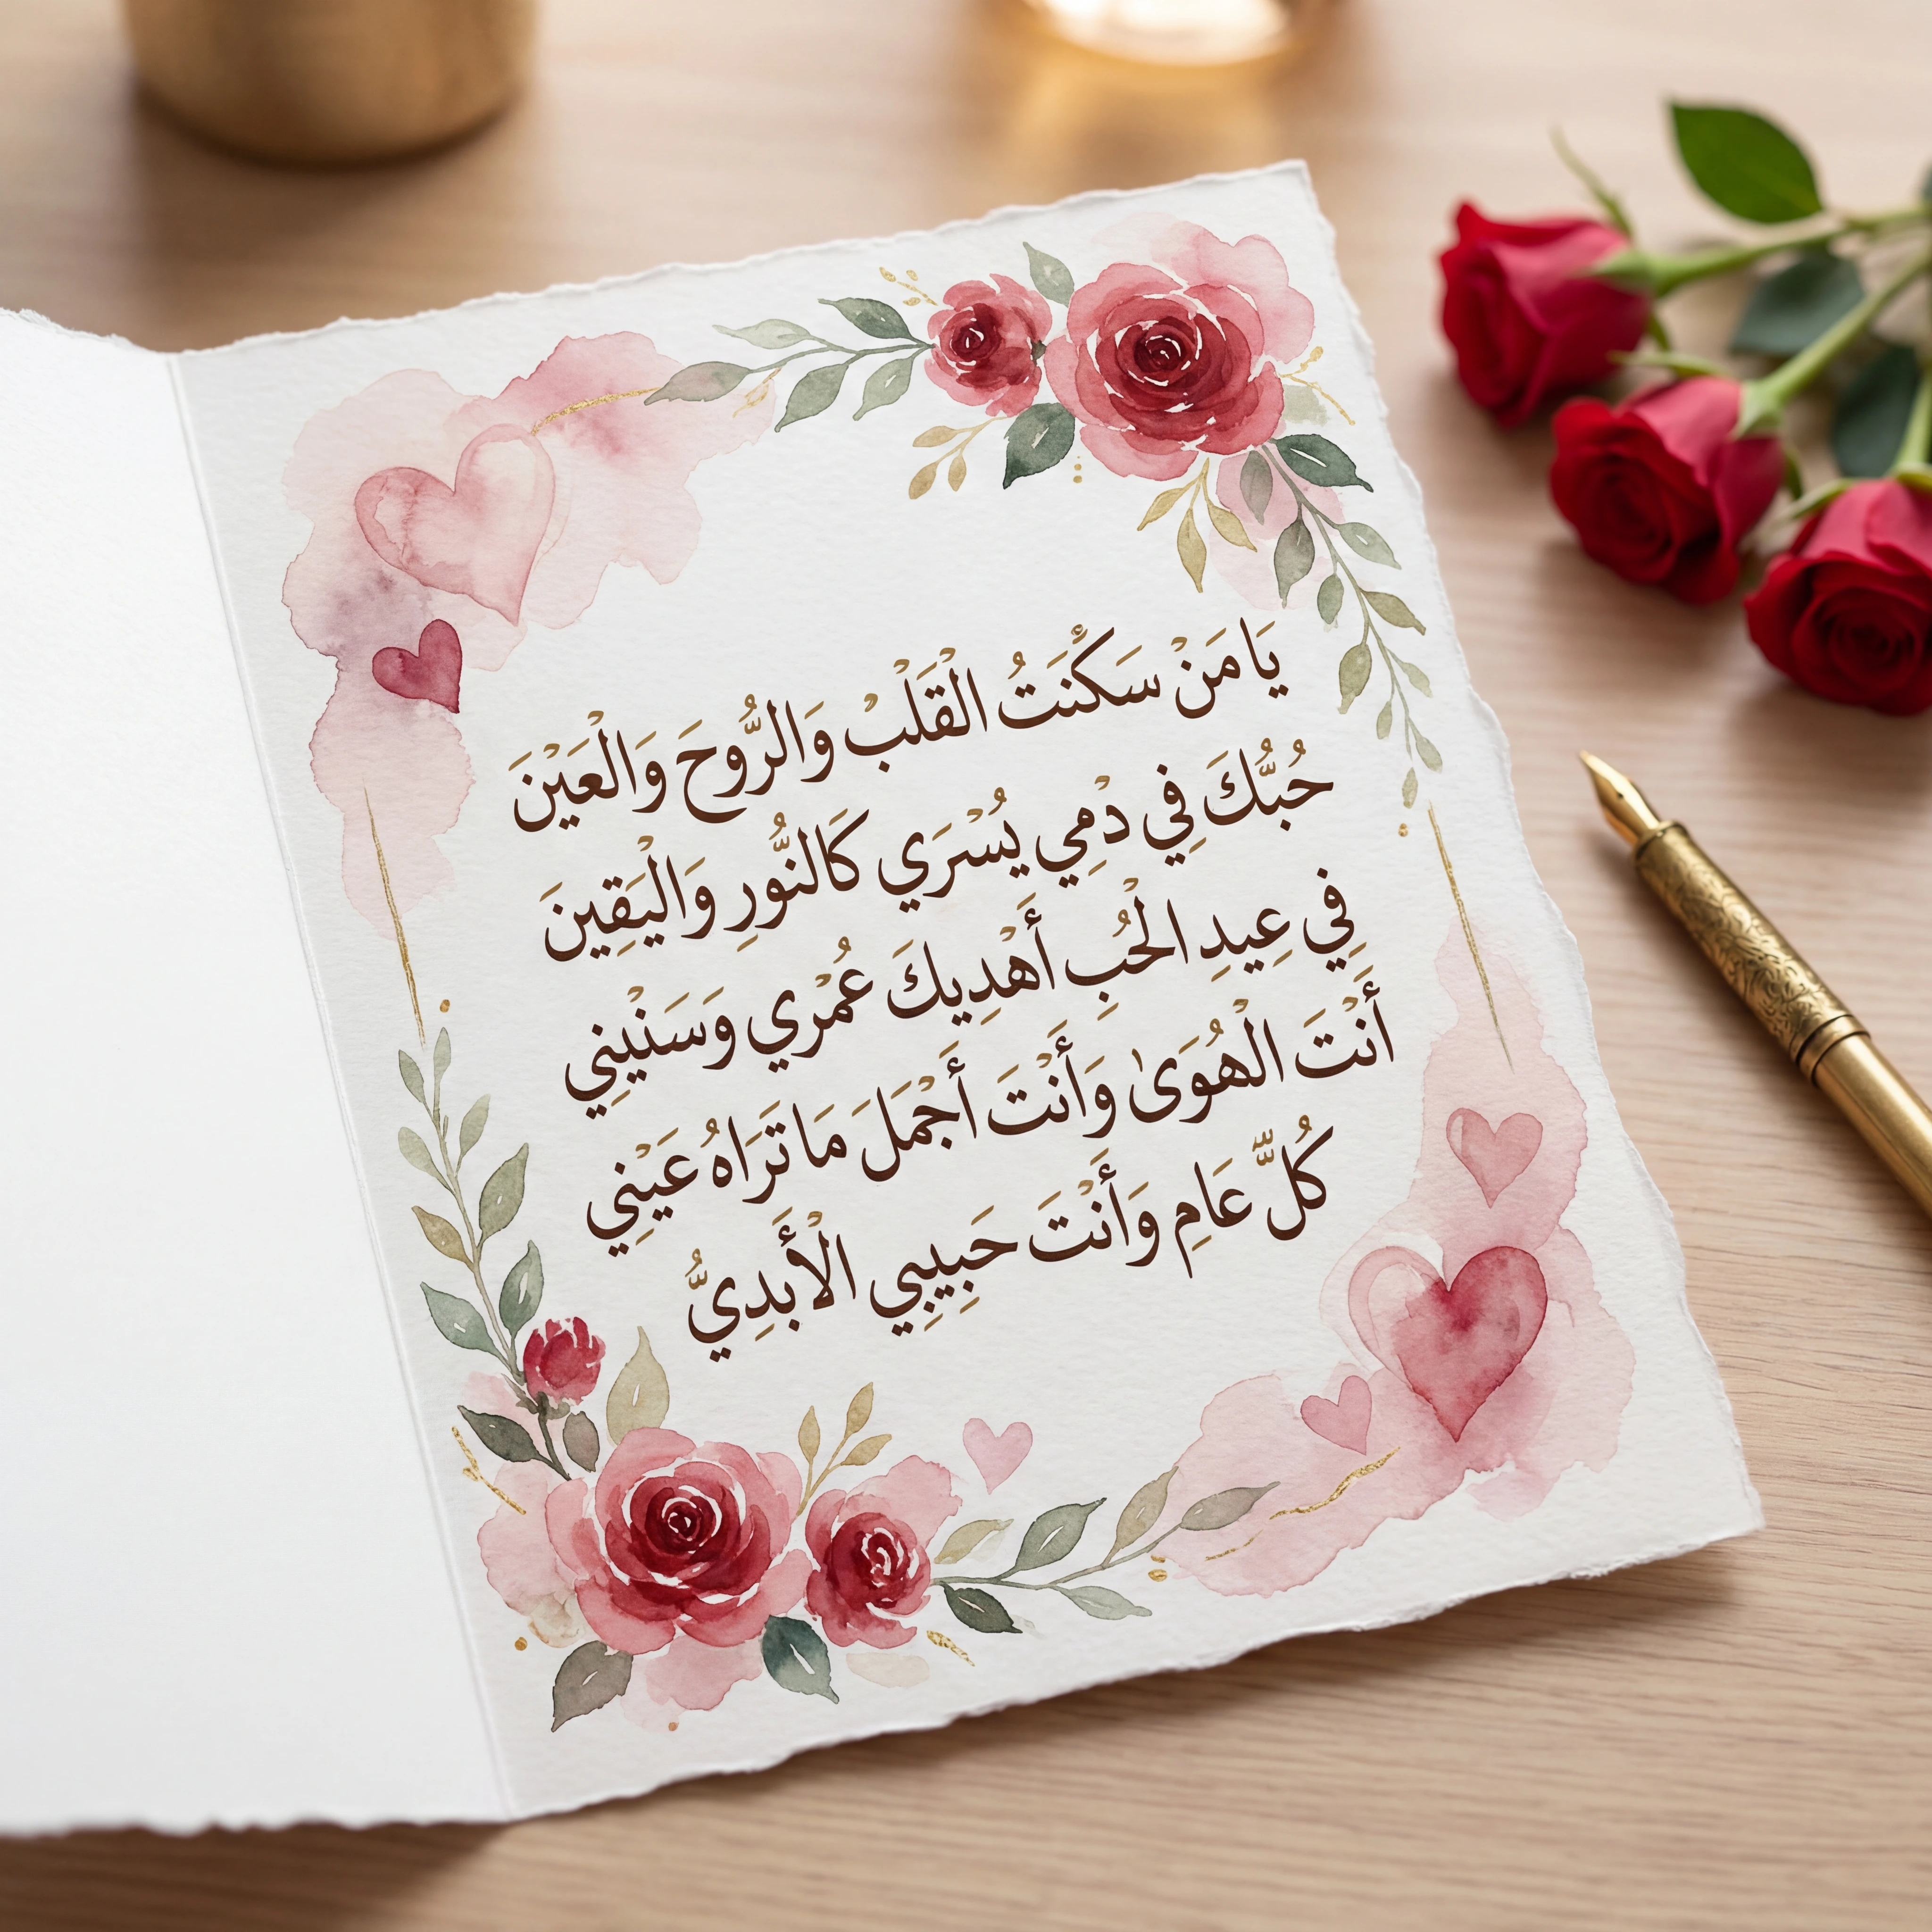 يَا مَنْ سَكَنْتُ الْقَلْبْ وَالرُّوحَ وَالْعَيْنَ
حُبُّكَ فِي دْمِي يُسْرَي كَالنُّورِ وَالْيَقِينَ
فِي عِيدِ الْحُبِ أَهْدِيكَ عُمْرِي وَسَنْيِنِي
أَنْتَ الْهُوَىٰ وَأَنْتَ أَجْمَلَ مَا تَرَاهُ عَيْنِي
كُلَّ عَامِ وَأَنْتَ حَبِيبِي الْأَبَدِيُّ